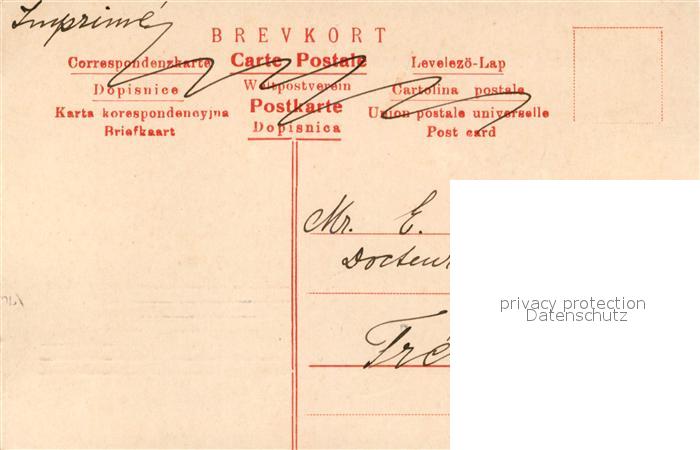 Imprimé
BREVKORT
Correspondenzkarte Carte Postale Levelező-Lap
Dopisnice Weltpostverein Cartolina postale
Karta korespondencyjna Postkarte Union postale universelle
Briefkaart Dopisnica Post card
Mr. E.
Docteur
Tré
privacy protection
Datenschutz